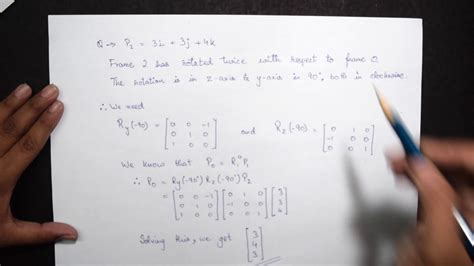 Q → P₂ = 3i + 3j + 4k
Frame 2 has rotated twice with respect to frame 0
The rotation is in z-axis & y-axis in 90°, both in clockwise.
∴ We need
Ry(-90) = [0 0 -1; 0 1 0; 1 0 0] and Rz(-90) = [0 1 0; -1 0 0; 0 0 1]
We know that P₀ = R₁⁰P₁
∴ P₀ = Ry(-90°) Rz(-90°) P₂
= [0 0 -1; 0 1 0; 1 0 0] [0 1 0; -1 0 0; 0 0 1] [3; 3; 4]
Solving this, we get [3; 4; 3]